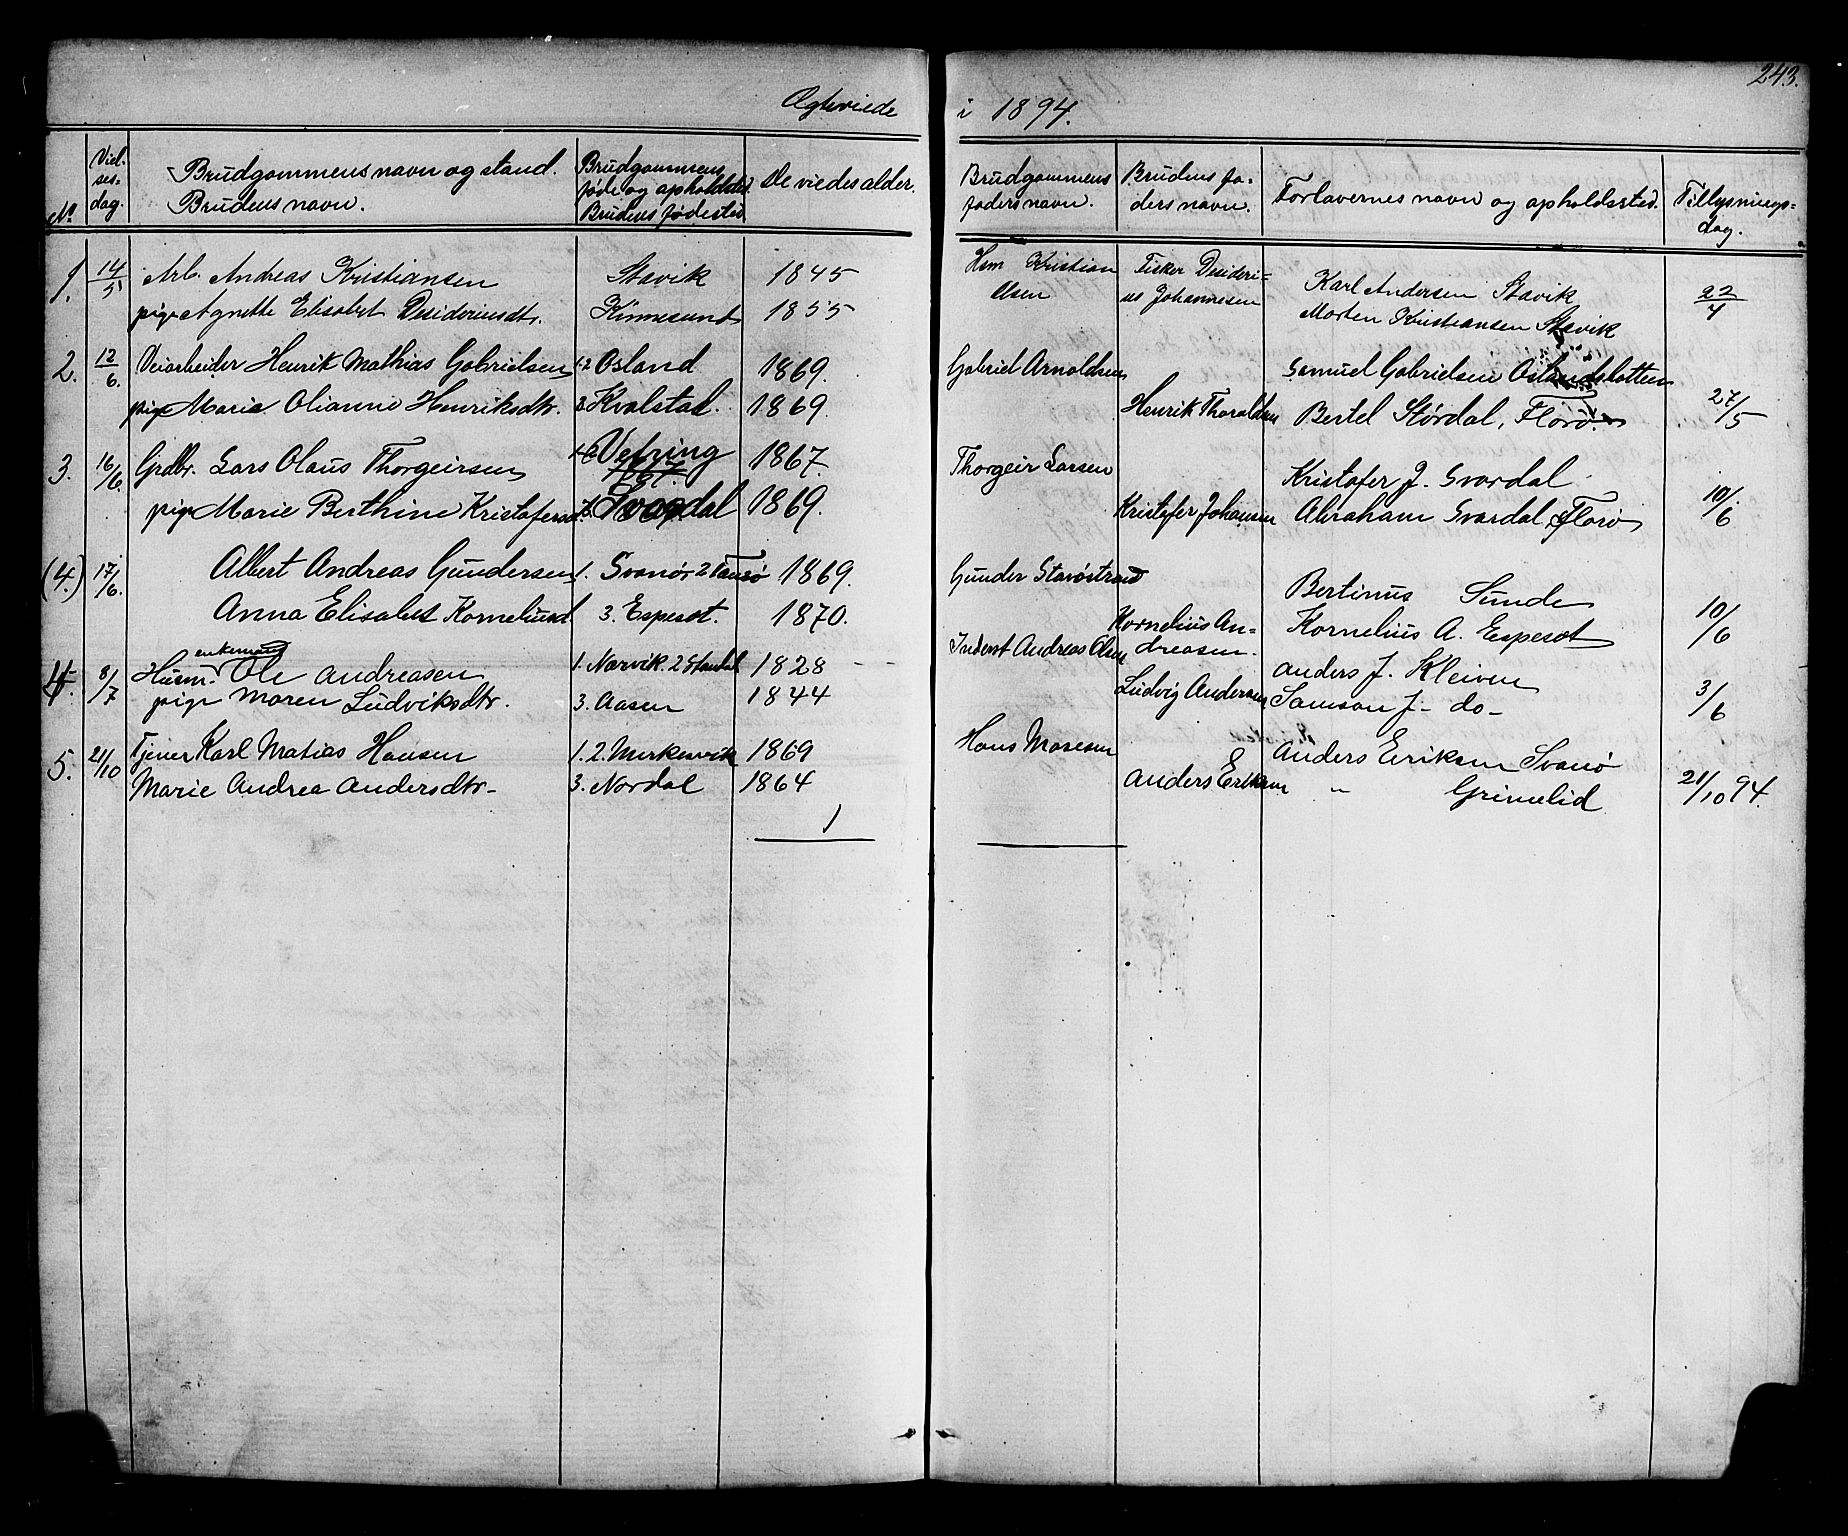 243.
Ægteviede i 1894.
No. Viel-ses-dag. Brudgommens navn og stand. Brudens navn. Brudgommens føde og opholdsted. Brudens fødested De viedes alder. Brudgommens faders navn. Brudens fa-ders navn. Forlovernes navn og opholdssted. Tillysnings-dag.
1. 14/5 Arb. Andreas Kristiansen Stavik 1845 Hsm Kristian Olsen Fisker Desideri-us Johannesen Karl Andersen Stavik 22/4
pige Agnette Elisabet Desideriusdt. Kinnesund 1855 Morten Kristiansen Stavik
2. 12/6. Veiarbeider Henrik Mathias Gabrielsen 1-2 Osland 1869. Gabriel Arnoldsen Samuel Gabrielsen Oslandsbotten 27/5
pige Marie Olianne Henriksdtr. 3 Kvalstad. 1869. Henrik Thoraldsen Bertel Størdal, Florø.
3. 16/6. Grdbr. Lars Olaus Thorgeirsen Vefring 1867. Thorgeir Larsen Kristofer J. Svardal 10/6
1867.
pige Marie Berthine Kristofersdt. Svardal 1869. Kristofer Johansen Abraham Svardal, Florø
(4.) 17/6. Albert Andreas Gundersen 1. Svanø 2 1869. Gunder Bertinus Sunde 10/6
Anna Elisabet Korneliusd. 3. Espeset. 1870. Kornelius An-dreasen. Kornelius A. Espeset
4. 8/7 Husm. enkemand Ole Andreasen 1. Nærvik. 2 1828 Inderst Andreas Olsen Anders J. Kleiven 3/6
pige Maren Ludviksdtr. 3. Aasen 1844 Ludvig Andersen Samson J- do-
5. 21/10 Tjener Karl Matias Hansen 1. 2. 1869 Hans Mosesen Anders Eriksen Svanø 21/10 94.
Marie Andrea Andersdtr- 3. Nordal 1864 Anders Eriksen " Grimelid
1